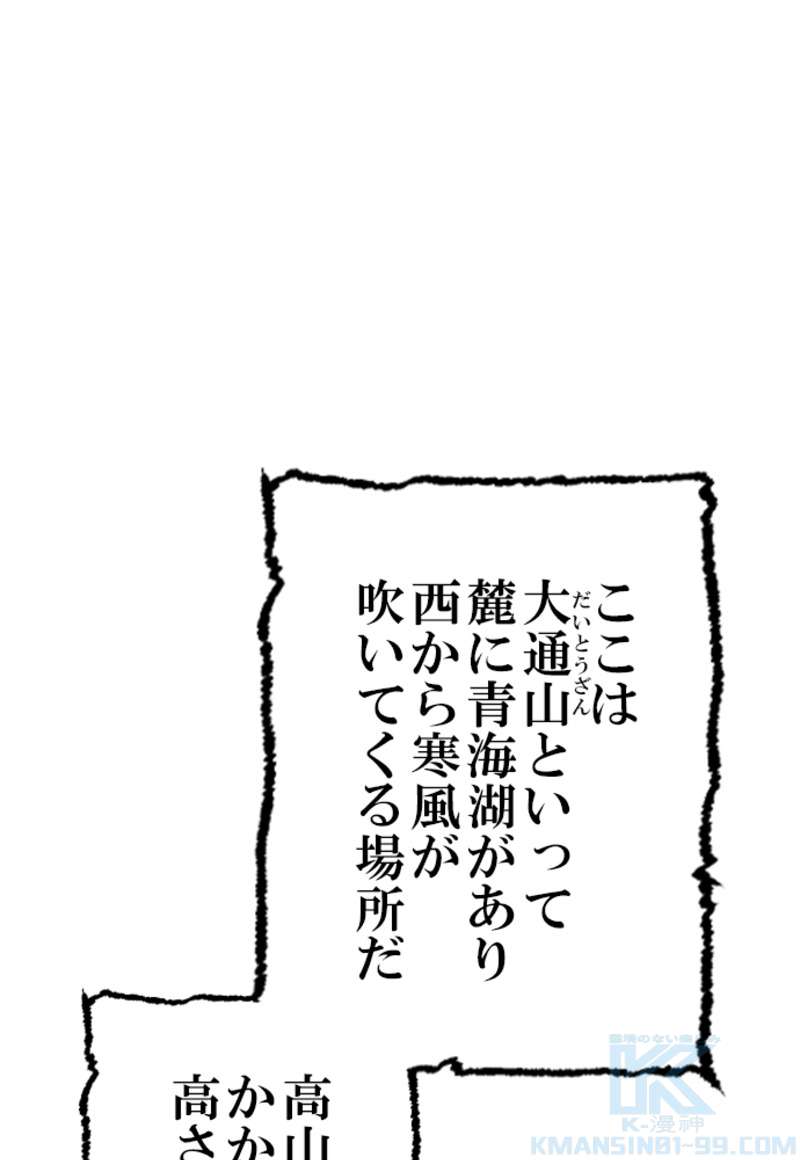 ここは
大通山といって
だいとうざん
麓に青海湖があり
西から寒風が
吹いてくる場所だ
高山
かか
高さ
K-漫神
KMANSIN01-99.COM